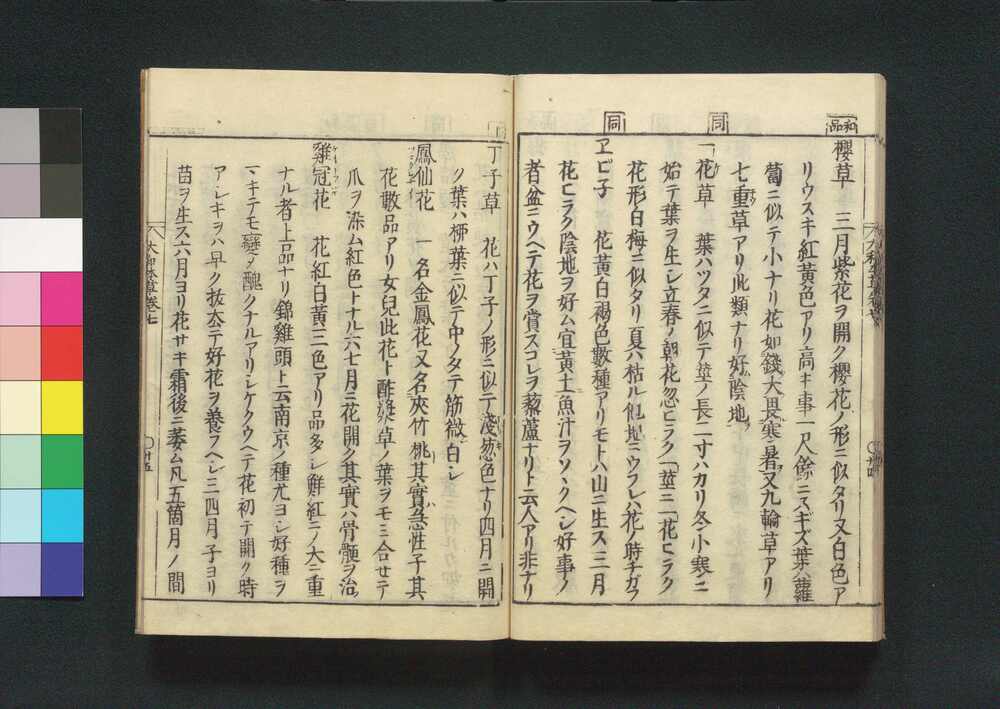 和品
櫻草　三月紫花ヲ開ク櫻花ノ形ニ似タリ又白色ア
リウスキ紅黃色アリ高キ事一尺餘ニスギズ葉ハ蘿
蔔ニ似テ小ナリ花如錢大畏寒暑又九輪草アリ
七重草アリ此類ナリ好陰地
同
一花草　葉ハツタニ似テ莖ノ長二寸ハカリ冬小寒ニ
始テ葉ヲ生シ立春ノ朝花忽ヒラク一莖ニ一花ヒラク
花形白梅ニ似タリ夏ハ枯ル他地ニウフレハ花ノ時チガフ
同
ヱビ子　花黃白褐色數種アリモトハ山ニ生ス三月
花ヒラク陰地ヲ好ム宜黃土魚汁ヲソヽクヘシ好事ノ
者盆ニウヘテ花ヲ賞スコレヲ藜蘆ナリト云人アリ非ナリ
丁子草　花ハ丁子ノ形ニ似テ淺葱色ナリ四月ニ開
ク葉ハ栁葉ニ似テ中ノタテ筋微白シ
鳳仙花　一名金鳳花又名夾竹桃其實急性子其
花數品アリ女兒此花ト酢漿草ノ葉ヲモミ合セテ
爪ヲ染ム紅色トナル六七月ニ花開ク其實ハ骨髄ヲ治
雞冠花　花紅白黃三色アリ品多シ鮮紅ニノ大ニ重
ナル者上品ナリ錦雞頭ト云南京ノ種尤ヨシ好種ヲ
マキテモ變メ醜クナルアリシケクウヘテ花初テ開ク時
アシキヲハ早ク拔去テ好花ヲ養フヘシ三四月子ヨリ
苗ヲ生ス六月ヨリ花サキ霜後ニ萎ム凡五箇月ノ間
大和本草卷七
廿五